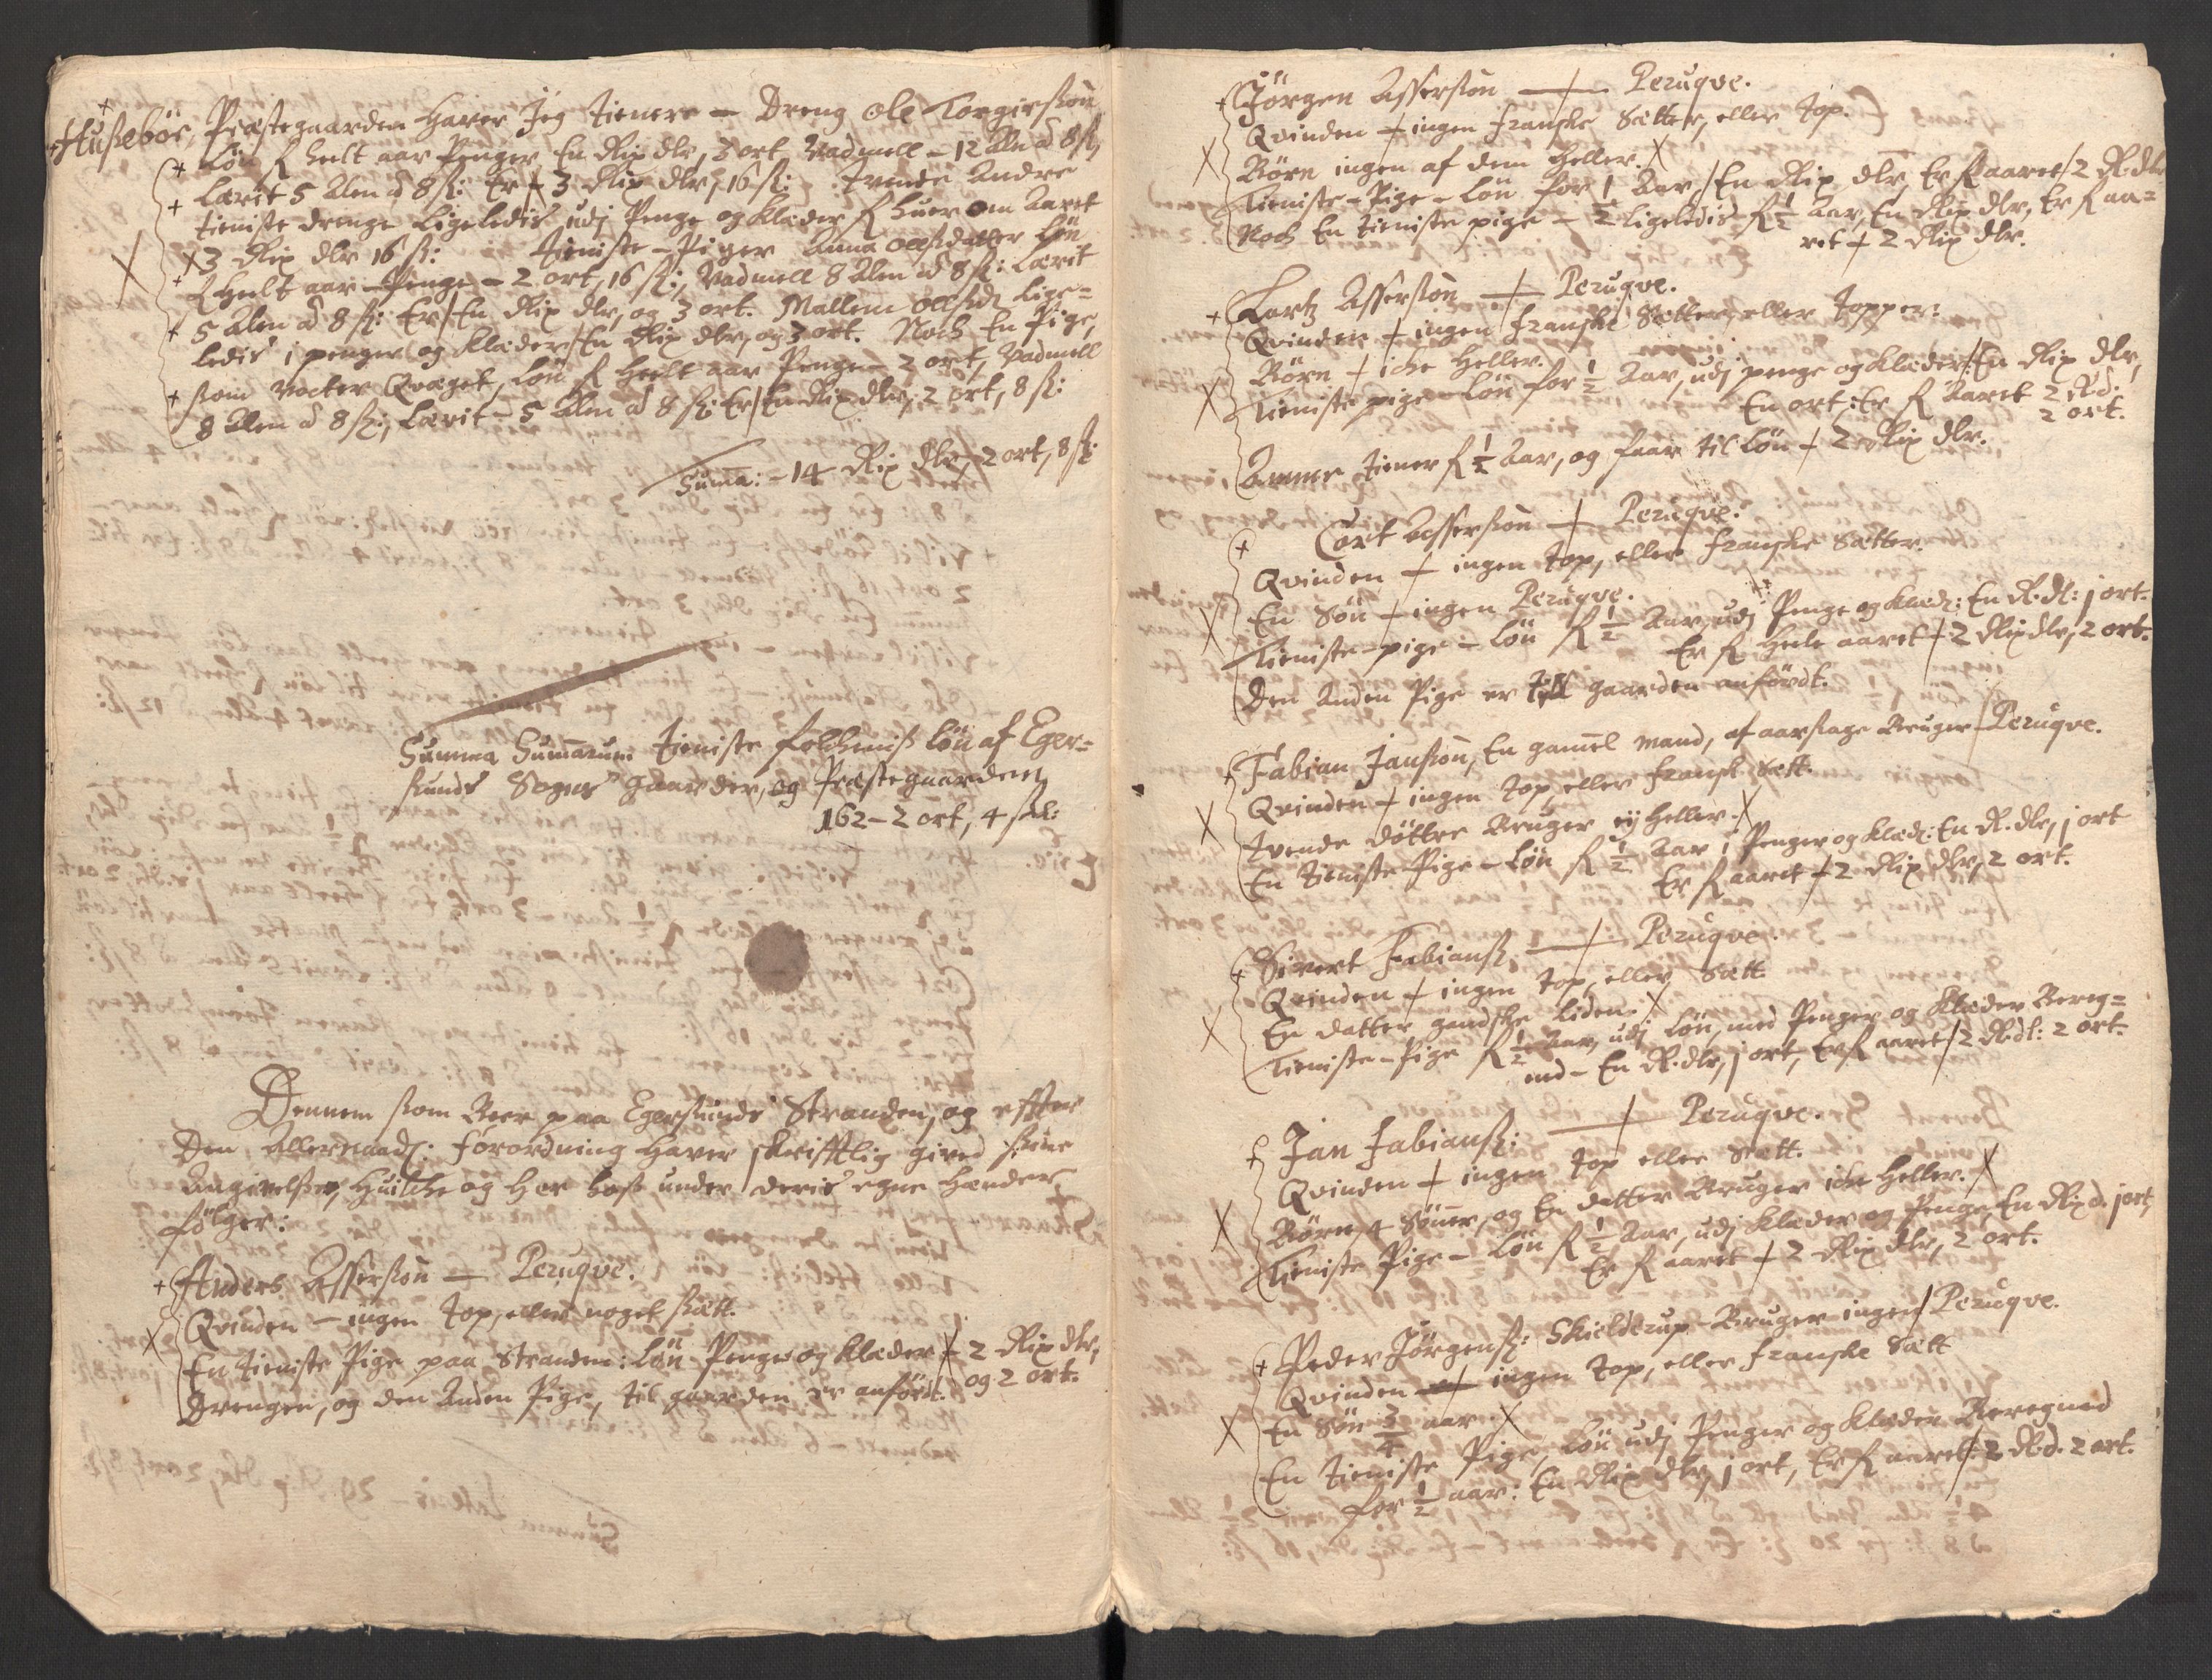 Hußebøe, Præstegaarden Haver Jeg tienere - Dreng Ole Torgierßøn
Løn ꝶ heelt aar Penger En Rix dlr, 3 ort Vadmell - 12 Alen ad 8 ß,
Lærit 5 Alen ad 8 ß: Er 3 Rix dlr, 16 ß: tvende Andre
tieniste drenge Ligeledis udj Penge og Klæder ꝶ huer om Aaret
3 Rix dlr 16 ß: tieniste-Piger Anna Olleßdatter Løn
ꝶ heelt aar Penge - 2 ort, 16 ß:, Vadmell 8 Alen ad 8 ß: Lærit
5 Alen ad 8 ß: Er En Rix dlr, og 3 ort. Mallem Olleßd: Lige=
ledis i penger og Klæder En Rix dlr, og 3 ort. Noch En Pige,
som vocter Qvæget, Løn ꝶ heelt aar Penge 2 ort, Vadmell
8 Alen ad 8 ß:, Lærit - 5 Alen ad 8 ß: Er En Rix dlr, 2 ort, 8 ß:
Suma: - 14 Rix dlr, 2 ort, 8 ß:
Summa Summarum tieniste folckeniß Løn af Eger=
sunds Sogns gaarder, og Præstegaarden
162 - 2 ort, 4 skl:
Dennem som Boer paa Egersunds Stranden, og effter
Den Allernaad: forordning haver skrifftlig gived sine
Angivelßer, huilche og her hoß under deris egne hænder
følger:
Anders Asserßøn - Peruqve.
Qvinden - ingen Top, eller noget sætt.
En tieniste Pige paa Stranden: Løn Penge og Klæder 2 Rix dlr,
Drengen, og den Anden Pige, til gaarden er anført. og 2 ort.
Jørgen Asserßøn - Peruqve.
Qvinden - ingen franske Sætter, eller Top.
Børn ingen af dem heller.
Tieniste-Pige-Løn for 1 Aar En Rix dlr, Er ꝶ aaret 2 R.dlr
Noch En tieniste pige - 1/2 Ligeledis ꝶ 1/2 Aar, En Rix dlr, Er ꝶ aa=
ret 2 Rix dlr.
Lartz Asserßøn - Peruqve.
Qvinden - ingen franske Sætter, eller Topper:
Børn - iche Heller.
Tieniste pige Løn for 1/2 Aar, udj penge og Klæder: En Rix dlr,
En ort: Er ꝶ Aaret 2 Rd:
2 ort.
Amme tiener ꝶ 1/2 Aar, og faar til Løn 2 Rix dlr.
Cort Asserßøn - Peruqve.
Qvinden - ingen Top, eller franske Sætter.
En Søn - ingen Peruqve.
Tieniste-pige - Løn ꝶ 1/2 Aar, udj Penge og Klæd: En R.dl: j ort.
Er ꝶ heele aaret 2 Rix dlr, 2 ort.
Den Anden Pige er till gaarden anført.
Fabian Janßøn, En gamel mand, af aarsage Bruger Peruqve.
Qvinden - ingen Top, eller fransk Sætt.
Tvende døttre Bruger ej heller.
En tieniste Pige - Løn ꝶ 1/2 Aar i Penger og Klæd: En R.dlr, j ort
Er ꝶ aaret 2 Rix dlr, 2 ort.
Sivert Fabianß: - Peruqve.
Qvinden - ingen Top, eller Sætt
En datter gandske liden.
Tieniste-Pige ꝶ 1/2 Aar, udj Løn, med Penger og Klæder Bereg=
ned - En R.dlr, j ort, Er ꝶ aaret 2 Rdl: 2 ort.
Jan Fabianß: - Peruqve.
Qvinden - ingen Top eller Sætt.
Børn 4 Sønner, og En datter Bruger iche heller.
Tieniste Pige - Løn ꝶ 1/2 Aar, udj Klæder og Penge, En Rix d. j ort,
Er ꝶ aaret 2 Rix dlr, 2 ort.
Peder Jørgenß: Skielderup Bruger ingen Peruqve.
Qvinden ingen Top, eller franske Sætt
En Søn 3/4 aar.
En tieniste Pige, Løn udj Penger og Klæder Beregned
for 1/2 aar: En Rix dlr, j ort, Er ꝶ aaret 2 Rd. 2 ort.